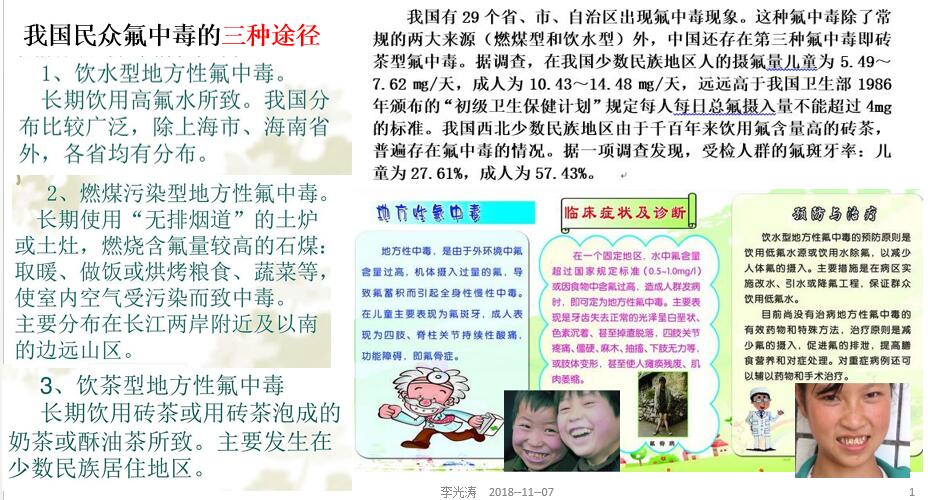 我国民众氟中毒的三种途径
1、饮水型地方性氟中毒。
长期饮用高氟水所致。我国分
布比较广泛，除上海市、海南省
外，各省均有分布。
2、燃煤污染型地方性氟中毒。
长期使用“无排烟道”的土炉
或土灶，燃烧含氟量较高的石煤：
取暖、做饭或烘烤粮食、蔬菜等，
使室内空气受污染而致中毒。
主要分布在长江两岸附近及以南
的边远山区。
3、饮茶型地方性氟中毒
长期饮用砖茶或用砖茶泡成的
奶茶或酥油茶所致。主要发生在
少数民族居住地区。
我国有 29 个省、市、自治区出现氟中毒现象。这种氟中毒除了常
规的两大来源（燃煤型和饮水型）外，中国还存在第三种氟中毒即砖
茶型氟中毒。据调查，在我国少数民族地区人的摄氟量儿童为 5.49～
7.62 mg/天，成人为 10.43～14.48 mg/天，远远高于我国卫生部 1986
年颁布的“初级卫生保健计划”规定每人每日总氟摄入量不能超过 4mg
的标准。我国西北少数民族地区由于千百年来饮用氟含量高的砖茶，
普遍存在氟中毒的情况。据一项调查发现，受检人群的氟斑牙率：儿
童为 27.61%，成人为 57.43%。
地方性氟中毒
地方性中毒，是由于外环境中氟
含量过高，机体摄入过量的氟，导
致氟蓄积而引起全身性慢性中毒。
在儿童主要表现为氟斑牙，成人表
现为四肢、脊柱关节持续性酸痛，
功能障碍，即氟骨症。
临床症状及诊断
在一个固定地区，水中氟含量
超过国家规定标准（0.5~1.0mg/l）
或因食物中含氟过高，造成人群发病
时，即可定为地方性氟中毒。主要表
现是牙齿失去正常的光泽呈白垩状、
色素沉着、甚至掉渣脱落，四肢关节
疼痛、僵硬、麻木、抽搐、下肢无力等，
或肢体变形，甚至使人瘫痪残废、肌
肉萎缩。
氟骨病
预防与治疗
饮水型地方性氟中毒的预防原则是
饮用低氟水源或饮用水除氟，以减少
人体氟的摄入。主要措施是在病区实
施改水、引水或降氟工程，保证群众
饮用低氟水。
目前尚没有治病地方性氟中毒的
有效药物和特殊方法，治疗原则是减
少氟的摄入，促进氟的排泄，提高膳
食营养和对症处理。对重症病例还可
以辅以药物和手术治疗。
李光涛 2018--11--07
1